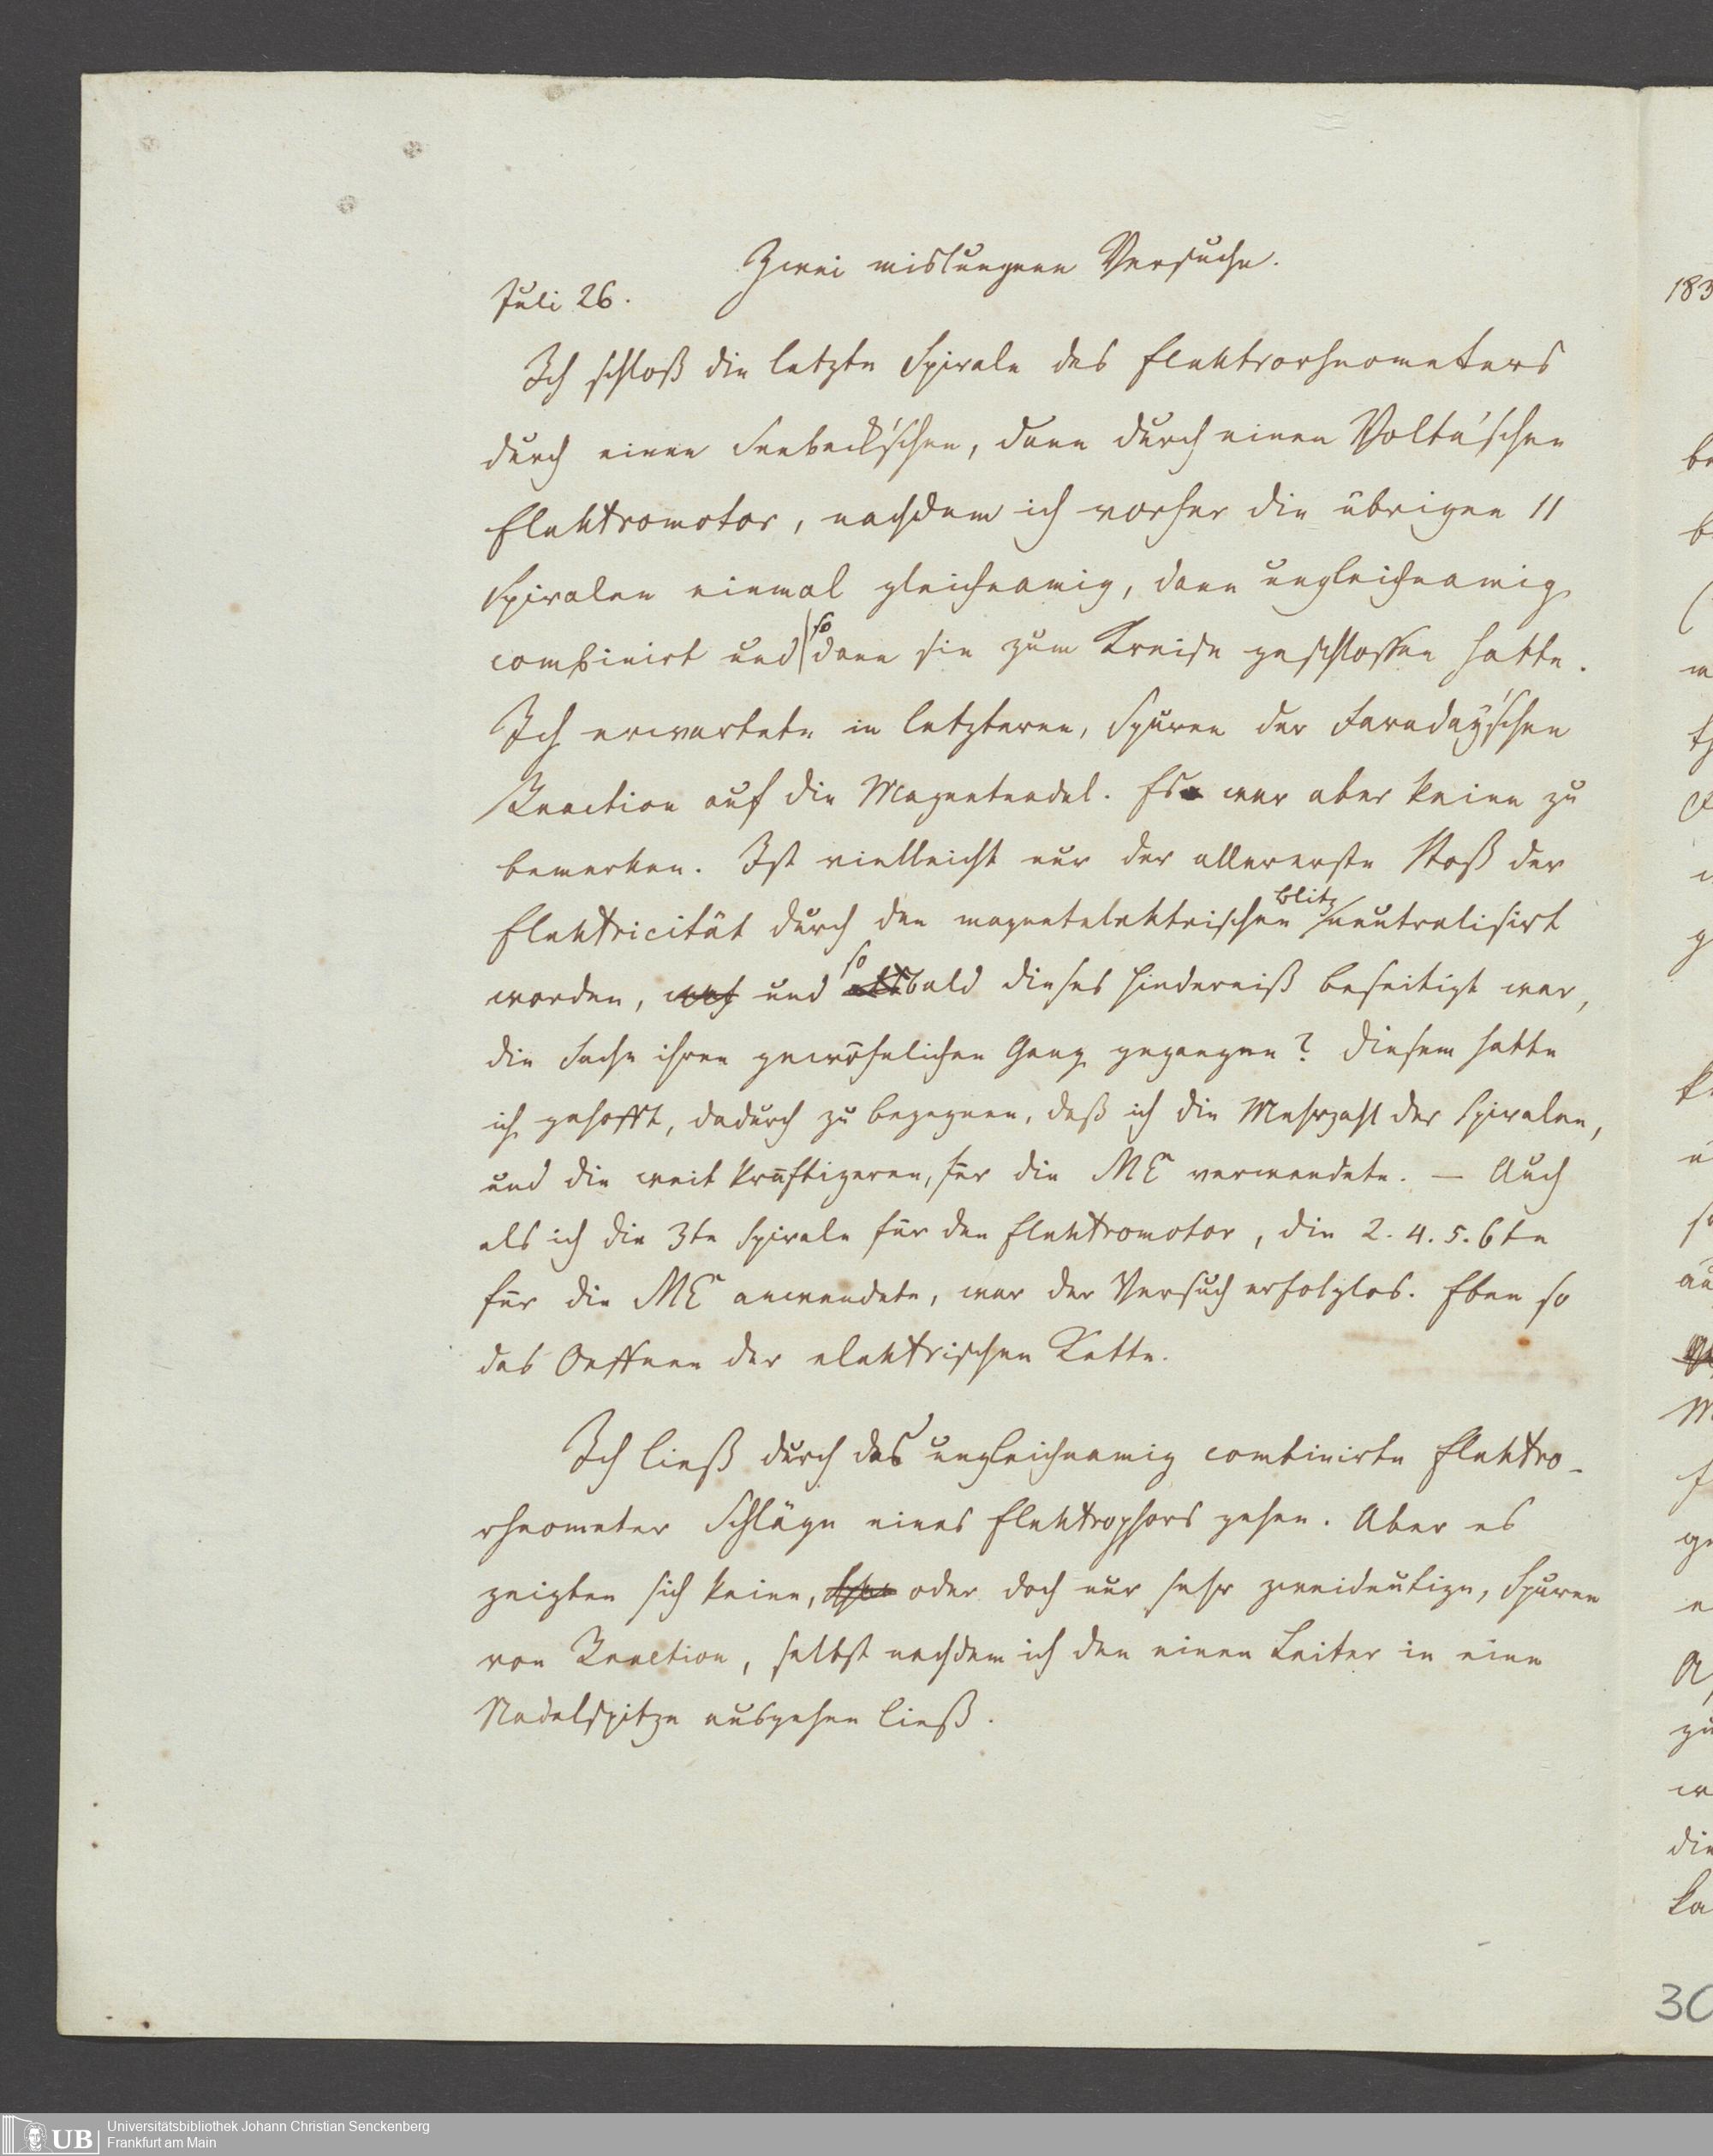 Zwei mislungene Versuche.
Juli 26.
Ich schloß die letzte Spirale des Elektrorheometers
durch einen Seebeck'schen, dann durch einen Volta'schen
Elektromotor, nachdem ich vorher die übrigen 11
Spiralen einmal gleichnamig, dann ungleichnamig
combinirt und so dann sie zum Kreise geschlossen hatte.
Ich erwartete in letzteren, Spuren der Faraday'schen
Reaction auf die Magnetnadel. Es war aber keine zu
bemerken. Ist vielleicht nur der allererste Stoß der
Elektricität durch den magnetelektrischen blitz neutralisirt
worden, und so bald dieses Hinderniß beseitigt war,
die Sache ihren gewöhnlichen Gang gegangen? Diesem hatte
ich gehofft, dadurch zu begegnen, daß ich die Mehrzahl der Spiralen,
und die weit kräftigeren, für die ME verwendete. — Auch
als ich die 3te Spirale für den Elektromotor, die 2. 4. 5. 6te
für die ME anwendete, war der Versuch erfolglos. Eben so
das Oeffnen der elektrischen Kette.
Ich ließ durch das ungleichnamig combinirte Elektro-
rheometer Schläge eines Elektrophors gehen. Aber es
zeigten sich keine, oder doch nur sehr zweideutige, Spuren
von Reaction, selbst nachdem ich den einen Leiter in eine
Nadelspitze ausgehen ließ.
183
30
UB
Universitätsbibliothek Johann Christian Senckenberg
Frankfurt am Main